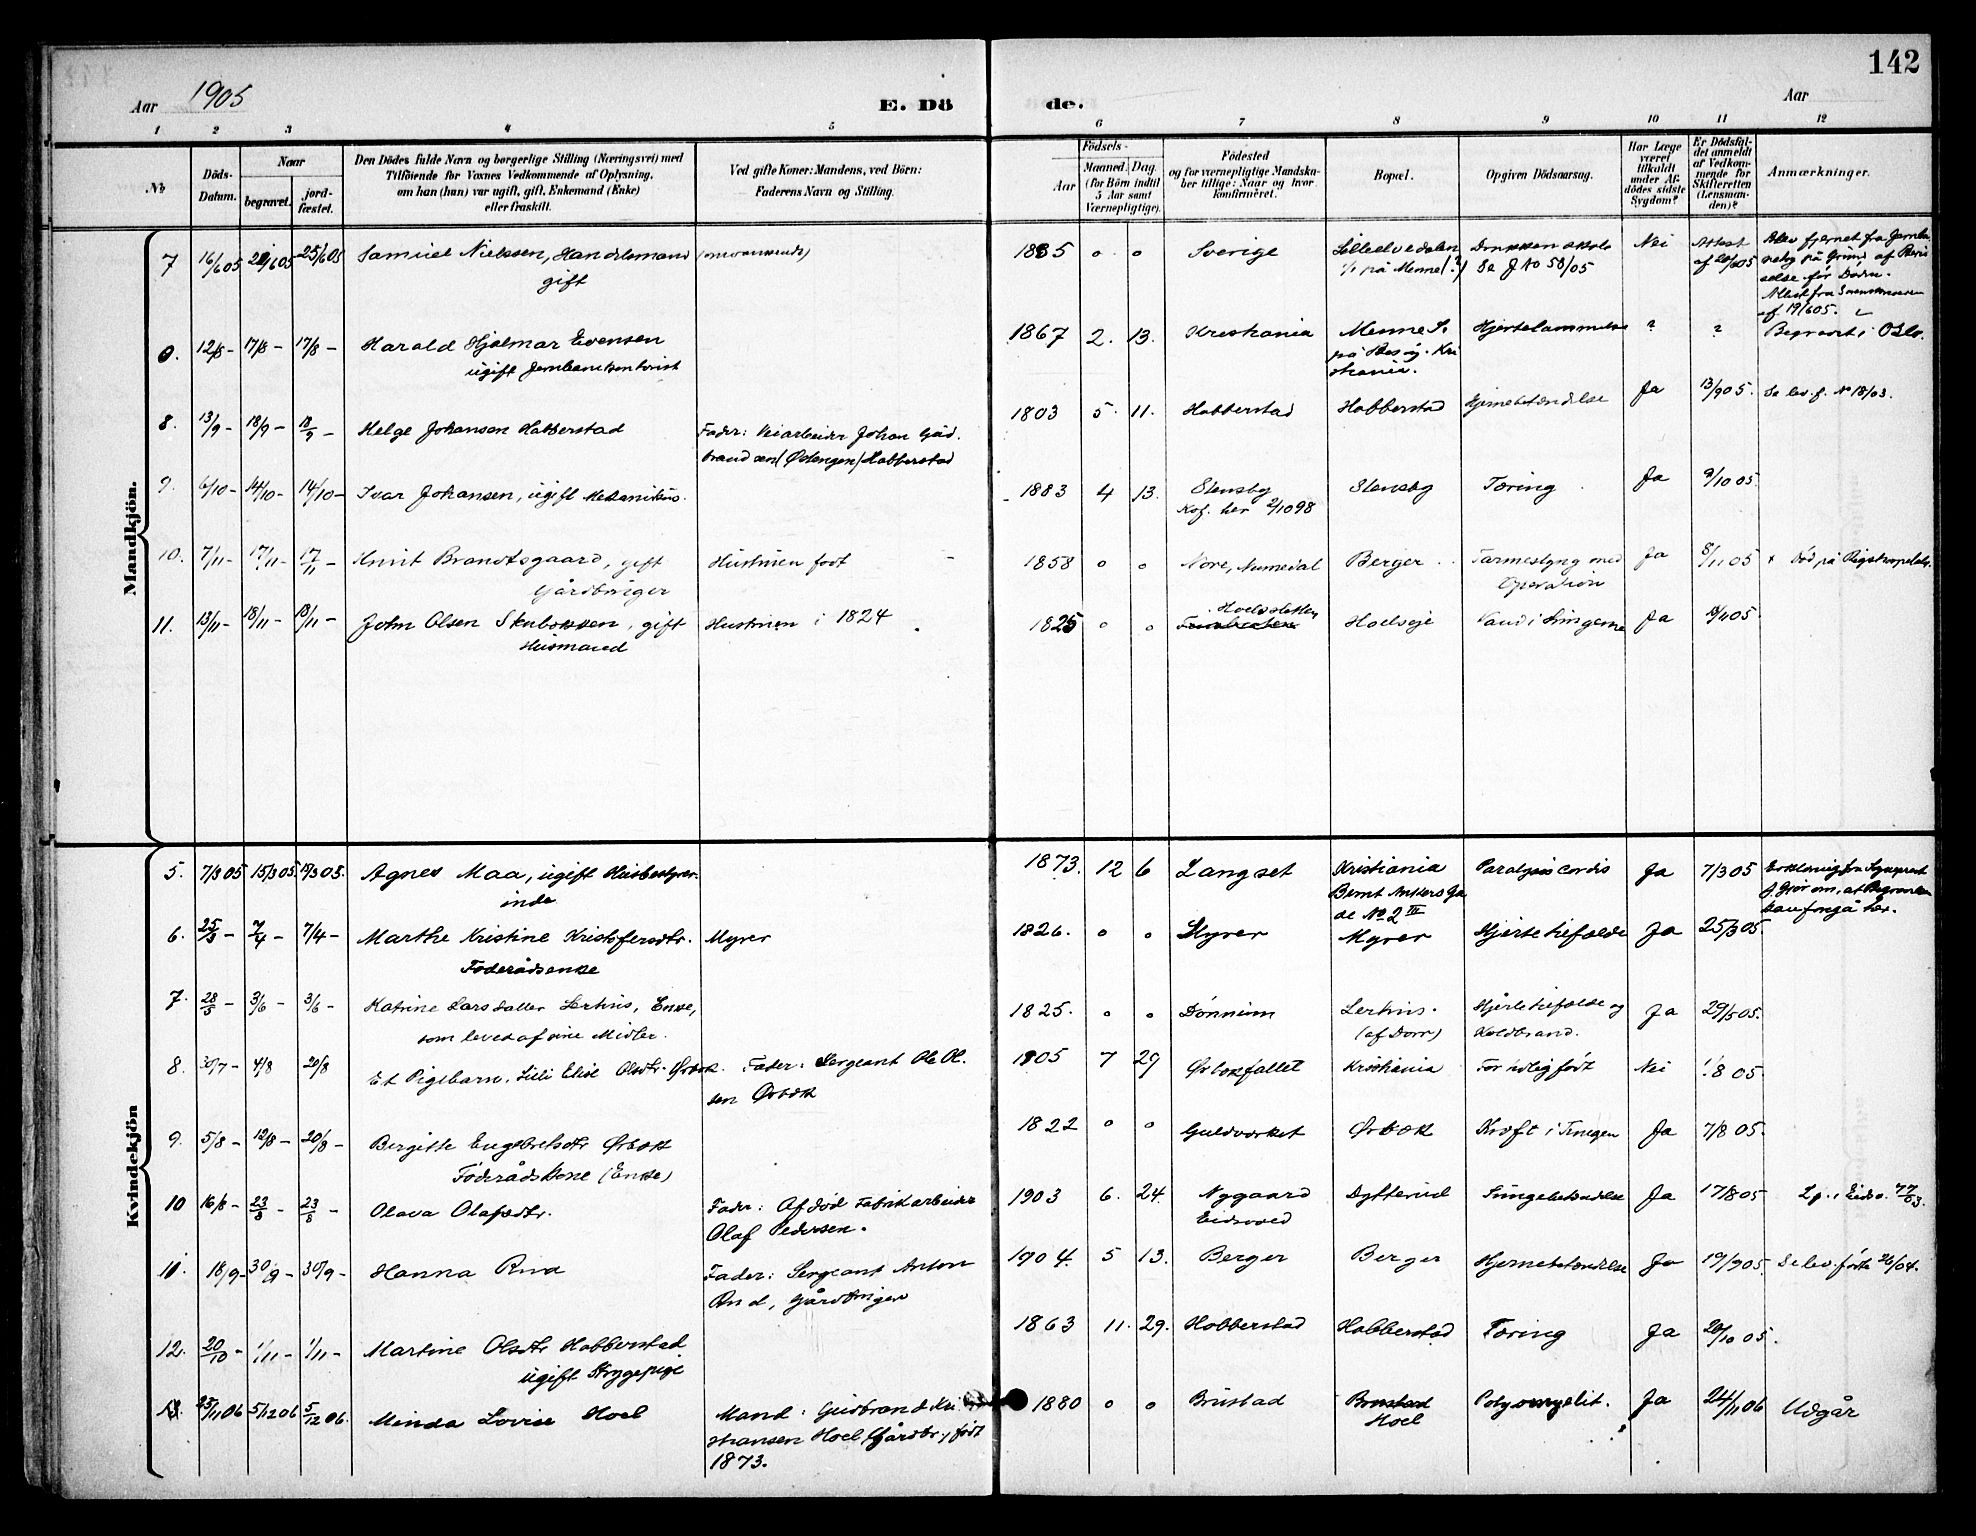 142
Aar 1905
E. Dö
de.
Aar
1 2 3 4 5 6 7 8 9 10 11 12
No
Döds-Datum.
Naar
begravet.
jord-fæstet.
Den Dödes fulde Navn og borgerlige Stilling (Næringsvei) med
Tilföiende for Voxnes Vedkommende af Oplysning,
om han (hun) var ugift, gift, Enkemand (Enke)
eller fraskilt.
Ved gifte Koner: Mandens, ved Börn:
Faderens Navn og Stilling.
Födsels-
Aar
Maaned. Dag.
(for Börn indtil
5 Aar samt
Værnepligtige).
Födested
og for værnepligtige Mandska-
ber tillige: Naar og hvor
konfirmeret.
Bopæl.
Opgiven Dödsaarsag.
Har Læge
været
tilkaldt
under Af-
dödes sidste
Sygdom?
Er Dödsfal-
det anmeldt
af Vedkom-
mende for
Skifteretten
(Lensman-
den)?
Anmærkninger.
Mandkjön.
7 16/6 05 25/6 05 Samuel Nielssen, Handelsmand (omvankende) 1835 o o Sverige Lilleelvedalen Drukken Nei Attest
gift på Menne (?) Se J No 58/05 af
Blev fjernet fra Jernba
på Grund af
før Døden.
Attest fra
af 19/6 05.
12/8 - 17/8 - 17/8 - Harald Hjalmar Evensen 1867 2. 13. Kristiania Menne S. Hjertelammelse ? ? Begravet i Oslo.
ugift på Besøg. Kri
stiania.
8. 13/9 - 18/9 - 18/9 - Helge Johansen Habberstad Fader: Veiarbeider Johan Gud. 1803 5. 11. Habberstad Habberstad Hjernebetændelse Ja 13/9 05. Se lev. f. No 18/03.
brandsen (Østengen) Habberstad
9. 6/10 - 14/10 - 14/10 - Ivar Johansen, ugift Mekanikus. 1883 4 13. Stensby Stensby Tæring Ja 9/10 05
Kof. her 2/10 98
10. 7/11 - 17/11 - 17/11 - Knut Brandtsgaard, gift Hustruen født - 1858 o o Nore, Numedal Berger Tarmeslyng med Ja 8/11 05 x Død på Rigshospitalet.
Gårdbruger Operation
11. 13/11 - 18/11 - 18/11 - John Olsen Skubokken, gift Hustruen i 1824 1825 o o Hoelsstuen Hoelseje Vand i Lungerne Ja
Husmand
Kvindekjön
5. 7/3 05 15/3 05 Agnes Maa, ugift Husbestyrer- 1873. 12 6 Langset Kristiania Paralysis cordis Ja 7/3 05 Erklæring fra Sogneprest
inde Bernt Ankers Ga om, at Begravelsen
de No 2 III kan foregå her.
6. 25/3 - 7/4 - 7/4 - Marthe Kristine Kristofersdtr. Myrer 1826. o o Myrer Myrer Hjertetilfælde Ja 25/3 05
Føderådsenke
7. 28/5 - 3/6 - 3/6 - Katrine Larsdatter Lerhus, Enke, 1825. o o Dønnum Lerhus. Hjertetilfælde og Ja 29/5 05.
som levet af sine Midler. (af Dorr) Koldbrand.
8. 30/7 - 4/8 20/8 Et Pigebarn, Lilli Elise Olsdtr. Ørbæk. Fader: Sergeant Ole Ol. 1905 7 29 Ørbækfallet Kristiania For tidlig født Nei 1/8 05
sen Ørbæk
9. 5/8 - 12/8 - 20/8 - Bergitte Engebretsdtr Ørbæk 1822 o o Guldværket Ørbæk Kræft i Tungen Ja 7/8 05.
Føderådskone (Enke)
10 16/8 - 23/8 - 23/8 - Olava Olafsdtr. Fader: Afdød Fabrikarbeider 1903 6. 24. Nygaard Dytterud Lungebetændelse Ja 17/8 05 i Eidsv. 77/03.
Olaf Pedersen. Eidsvold
11. 18/9 - 30/9 - 30/9 - Hanna Rud Fader: Sergeant Anton 1904. 5 13. Berger Berger Hjernebetændelse Ja 19/9 05 Se lev. fødte 26/04.
Rud, Gårdbruger
12. 20/10 - 1/11 - 1/11 - Martine Olsdtr Habberstad 1863 11. 29. Habberstad Habberstad Tæring Ja 20/10 05.
ugift Strygepige
13. 23/11 06 5/12 06 5/12 06. Minda Lovise Hoel Mand: Gudbrand Kri 1880 o o Brustad Brustad Polyomyelit. Ja 24/11 06 Udgår
stiansen Hoel Gårdbr., født Hoel
1873.